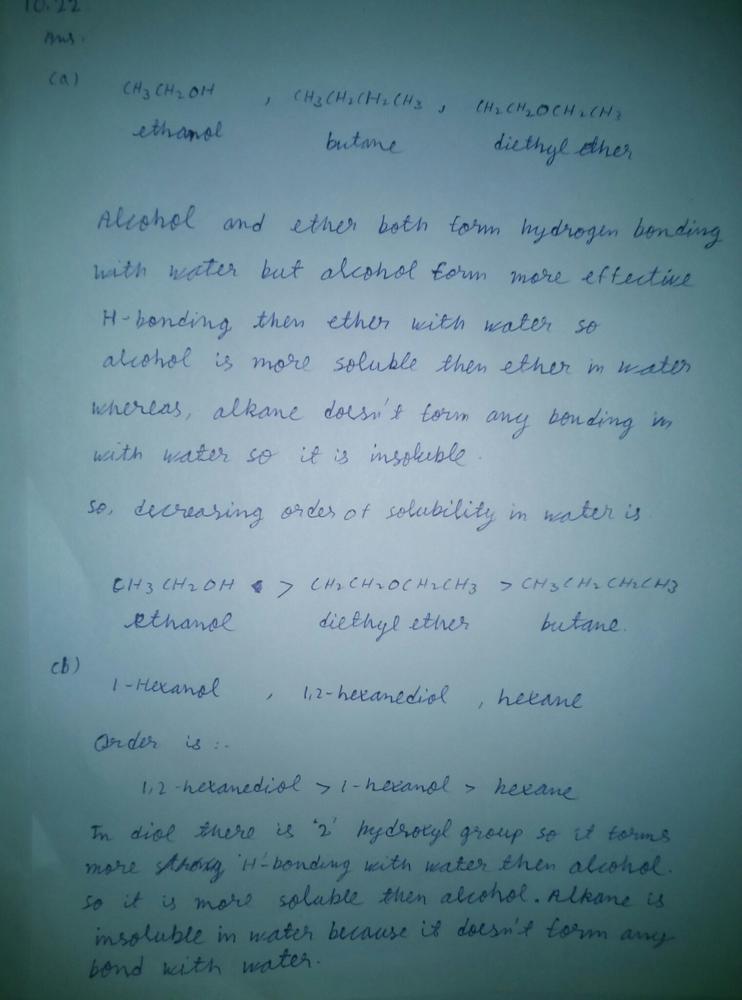 10.22
Ans.
(a) CH3CH2OH , CH3CH2CH2CH3 , CH2CH2OCH2CH3
ethanol butane diethyl ether
Alcohol and ether both form hydrogen bonding
with water but alcohol form more effective
H-bonding then ether with water so
alcohol is more soluble then ether in water
whereas, alkane doesn't form any bonding in
with water so it is insoluble.
so, decreasing order of solubility in water is
CH3CH2OH > CH2CH2OCH2CH3 > CH3CH2CH2CH3
ethanol diethyl ether butane.
(b) 1-Hexanol , 1,2-hexanediol , hexane
Order is :-
1,2-hexanediol > 1-hexanol > hexane
In diol there is '2' hydroxyl group so it forms
more strong 'H'-bonding with water then alcohol.
so it is more soluble then alcohol. Alkane is
insoluble in water because it doesn't form any
bond with water.